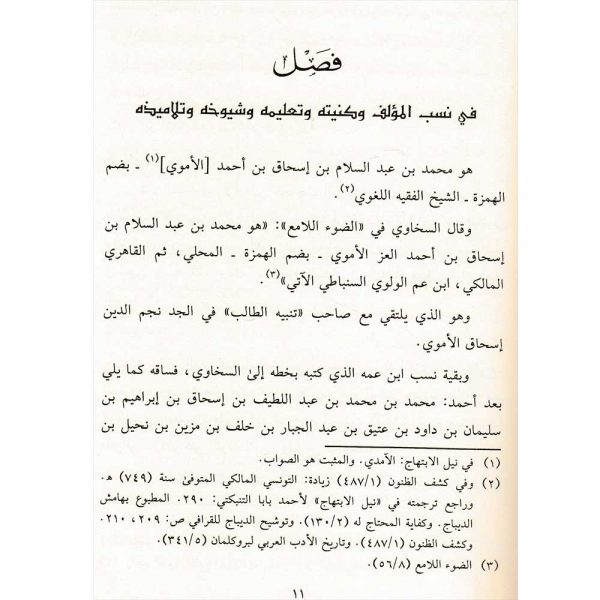 فَصْل
في نسب المؤلف وكنيته وتعليمه وشيوخه وتلاميذه
هو محمد بن عبد السلام بن إسحاق بن أحمد [الأموي](١) ـ بضم
الهمزة ـ الشيخ الفقيه اللغوي(٢).
وقال السخاوي في «الضوء اللامع»: «هو محمد بن عبد السلام بن
إسحاق بن أحمد العز الأموي ـ بضم الهمزة ـ المحلي، ثم القاهري
المالكي، ابن عم الولوي السنباطي الآتي»(٣).
وهو الذي يلتقي مع صاحب «تنبيه الطالب» في الجد نجم الدين
إسحاق الأموي.
وبقية نسب ابن عمه الذي كتبه بخطه إلىٰ السخاوي، فساقه كما يلي
بعد أحمد: محمد بن محمد بن عبد اللطيف بن إسحاق بن إبراهيم بن
سليمان بن داود بن عتيق بن عبد الجبار بن خلف بن مزين بن نحيل بن
(١) في نيل الابتهاج: الآمدي. والمثبت هو الصواب.
(٢) وفي كشف الظنون (٤٨٧/١) زيادة: التونسي المالكي المتوفىٰ سنة (٧٤٩) هـ.
وراجع ترجمته في «نيل الابتهاج» لأحمد بابا التنبكتي: ٢٩٠. المطبوع بهامش
الديباج. وكفاية المحتاج له (١٣٠/٢). وتوشيح الديباج للقرافي ص: ٢٠٩، ٢١٠.
وكشف الظنون (٤٨٧/١). وتاريخ الأدب العربي لبروكلمان (٣٤١/٥).
(٣) الضوء اللامع (٥٦/٨).
١١